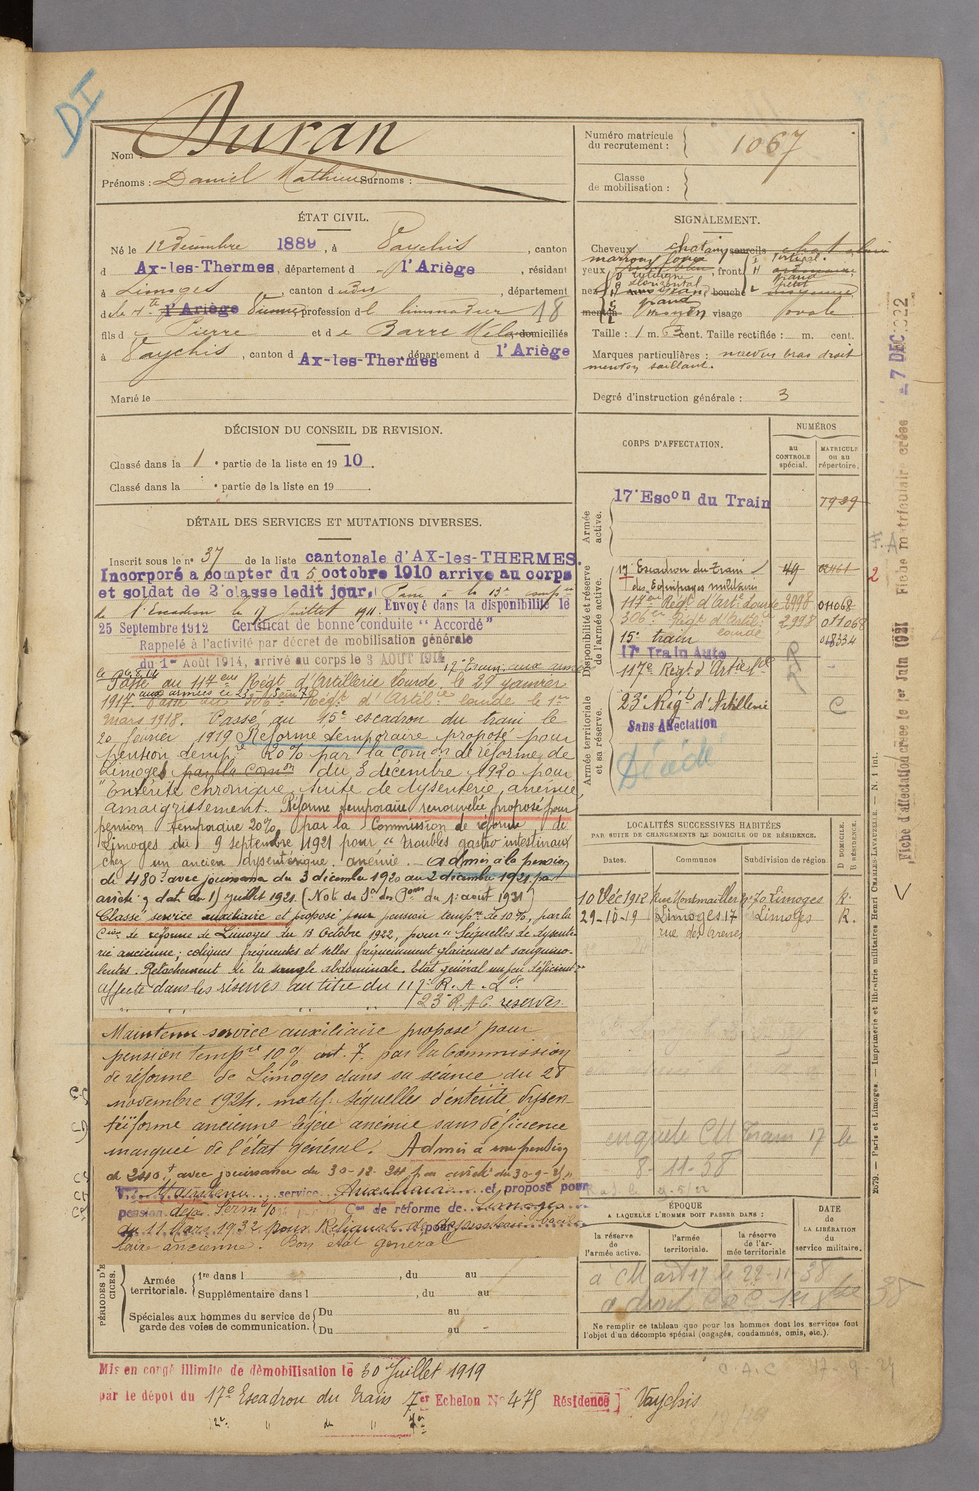 DI
Nom : Duran
Prénoms : Daniel Mathieu Surnoms :
Numéro matricule du recrutement : 1067
Classe de mobilisation :
ÉTAT CIVIL.
Né le 12 décembre 1889, à Vaychis, canton
d Ax-les-Thermes, département d l'Ariège, résidant
à Limoges, canton d dud, département
de la Hte l'Ariège Vienne, profession d limonadier 18
fils d Pierre et d Barre domiciliés
à Vaychis, canton d Ax-les-Thermes département d l'Ariège
Marié le
SIGNALEMENT.
Cheveux chatain sourcils
yeux front
nez bouche
menton visage ovale
Taille : 1 m. cent. Taille rectifiée : m. cent.
Marques particulières : naevus bras droit
menton saillant.
Degré d'instruction générale : 3
DÉCISION DU CONSEIL DE REVISION.
Classé dans la 1e partie de la liste en 1910.
Classé dans la e partie de la liste en 19
DÉTAIL DES SERVICES ET MUTATIONS DIVERSES.
Inscrit sous le n° 37 de la liste cantonale d'AX-les-THERMES.
Incorporé à compter du 5 octobre 1910 arrivé au corps
et soldat de 2e classe ledit jour. Passé à la 13e
de l'Escadron le 17 Juillet 1911. Envoyé dans la disponibilité le
25 Septembre 1912 Certificat de bonne conduite "Accordé"
Rappelé à l'activité par décret de mobilisation générale
du 1er Août 1914, arrivé au corps le 3 AOUT 1914
Passé au 114eme Régt d'Artillerie lourde le 29 janvier
1917. Passé au 306e Régt d'Artillrie lourde le 1er
mars 1918. Passé au 15e escadron du train le
20 février 1919 Réforme temporaire proposé pour
pension tempre 20% par la Comon de réforme de
Limoges par la Comon du 3 décembre 1920 pour
"Entérite chronique suite de dysenterie, anémie
amaigrissement. Réforme temporaire renouvelée proposé pour
pension temporaire 20% par la Commission de réforme de
Limoges du 9 septembre 1921 pour "troubles gastro intestinaux
chez un ancien dysentérique. anémie. Admis à la pension
de 480f avec jouissance du 3 décembre 1920 au 2 décembre 1921 par
arrêté
Classé service auxiliaire et proposé pour pension tempre de 10%, par la
Cion de réforme de Limoges du 13 Octobre 1922, pour "Séquelles de dysente
rie ancienne ; coliques fréquentes et selles fréquemment glaireuses et sanguino-
lentes. Relachement de la sangle abdominale. Etat général un peu déficient"
Affecté dans les réserves au titre du 117e R. A. Lde
" " " " 23e R.A.C. réserves.
Maintenu service auxiliaire proposé pour
pension tempre 10% art. 7. par la Commission
de réforme de Limoges dans sa séance du 28
novembre 1924. motif: Séquelles d'entérite dysen
tériforme ancienne légère anémie sans déficience
marquée de l'état général. Admis à une pension
de 240f avec jouissance du 30-12-24 par arrêté du 30-9-25
Maintenu service Auxiliaire et proposé pour
pension déf. Perm 10% Con de réforme de Limoges
du 11 Mars 1932 pour Reliquat de dysenterie bacil
laire ancienne. Bon état général
PÉRIODES D'EXERCICES.
Armée territoriale. 1re dans l , du au
Supplémentaire dans l , du au
Spéciales aux hommes du service de garde des voies de communication. Du au
Du au
CORPS D'AFFECTATION.
NUMÉROS
AU CONTROLE spécial.
MATRICULE OU AU répertoire.
Armée active.
17e Escon du Train 7989
Disponibilité et réserve de l'armée active.
17e Escadron du Train 49
des Equipages militaires
114e Régt d'Artie lourde 2998 011068
306e Régt d'Artilie lourde 2998 011068
15e train 018334
17e Train Auto
117e Régt d'Artie
Armée territoriale et sa réserve.
23e Régt d'Artillerie
Sans Affectation
Décédé
R
R
C
2
LOCALITÉS SUCCESSIVES HABITÉES
PAR SUITE DE CHANGEMENTS DE DOMICILE OU DE RÉSIDENCE.
Dates. Communes Subdivision de région D DOMICILE. R RÉSIDENCE.
10 Déc 1912 Rue Montmailler 70 Limoges R.
29-10-19 Limoges 17 Limoges R.
rue des Arènes
enquete CM Train 17 le
8-11-38
ÉPOQUE
A LAQUELLE L'HOMME DOIT PASSER DANS :
la réserve de l'armée active.
l'armée territoriale.
la réserve de l'armée territoriale
DATE de LA LIBÉRATION du service militaire.
à CM art 17 le 22-11-38
Ne remplir ce tableau que pour les hommes dont les services font l'objet d'un décompte spécial (engagés, condamnés, omis, etc.).
Mis en congé illimité de démobilisation le 30 Juillet 1919
par le dépôt du 17e Escadron du Train 7er Echelon N° 475 Résidence] Vaychis
Fiche d'affectation créée le 1er Juin 1921 Fiche matriculaire créée 7 DEC 1922
2679. — Paris et Limoges. — Imprimerie et librairie militaires Henri CHARLES-LAVAUZELLE. — N. 1 int.